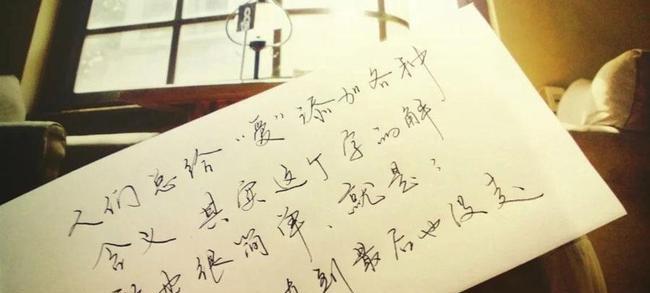 8
人们总给“爱”添加各种
含义 其实这个字的解
也很简单、就是：
到最后也没变